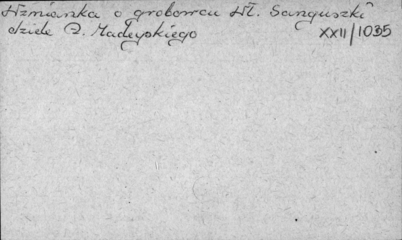 Wzmianka o grobowcu Wł. Sanguszki
dziele A. Madeyskiego XXII/1035